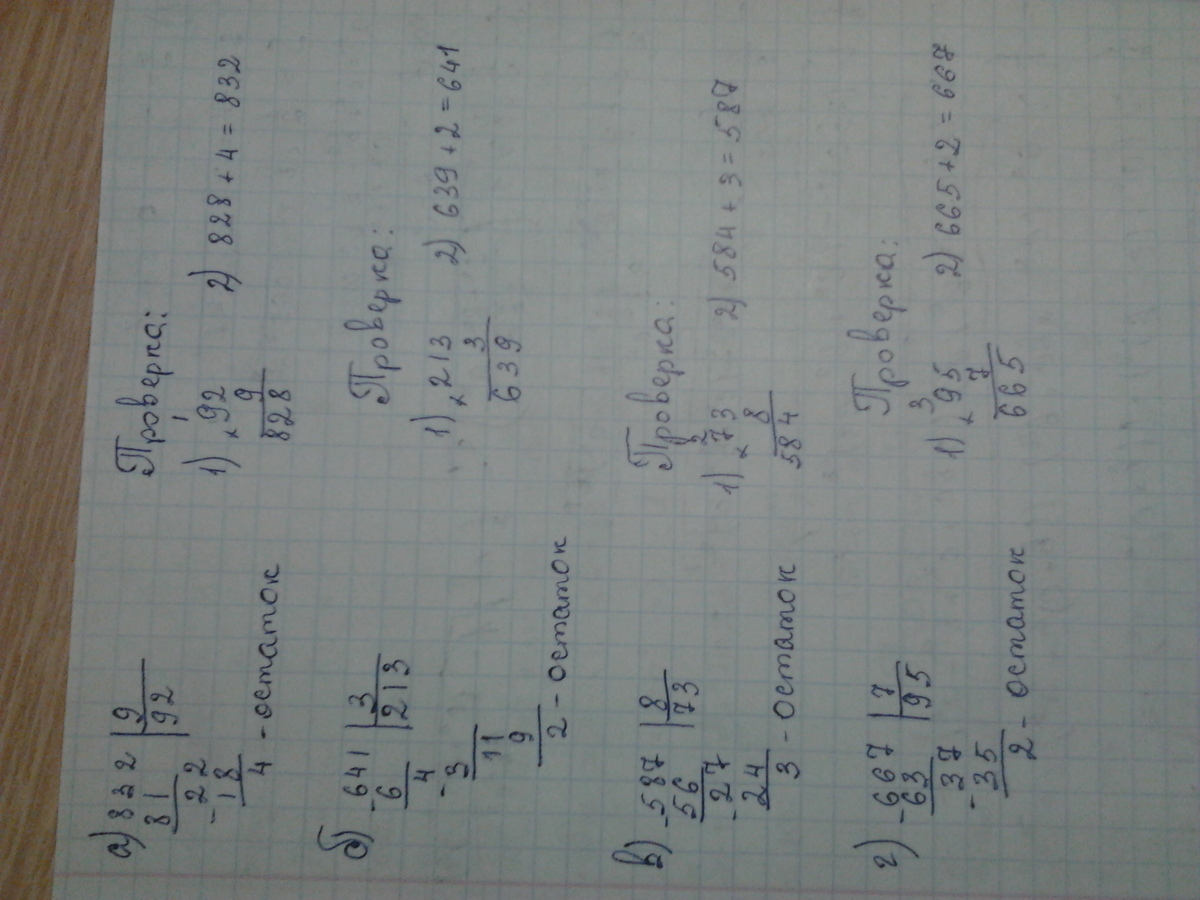 а) 832 |9 Проверка:
81 92 1
-22 1) ×92 2) 828 + 4 = 832
18 9
4 - остаток 828
б) -641 |3 Проверка:
6 213
4 1) ×213 2) 639 + 2 = 641
-3 3
11 639
9
2 - остаток
в) -587 |8 Проверка:
56 73 2
-27 1) ×73 2) 584 + 3 = 587
24 8
3 - остаток 584
г) -667 |7 Проверка:
63 95 3
37 1) ×95 2) 665 + 2 = 667
-35 7
2 - остаток 665